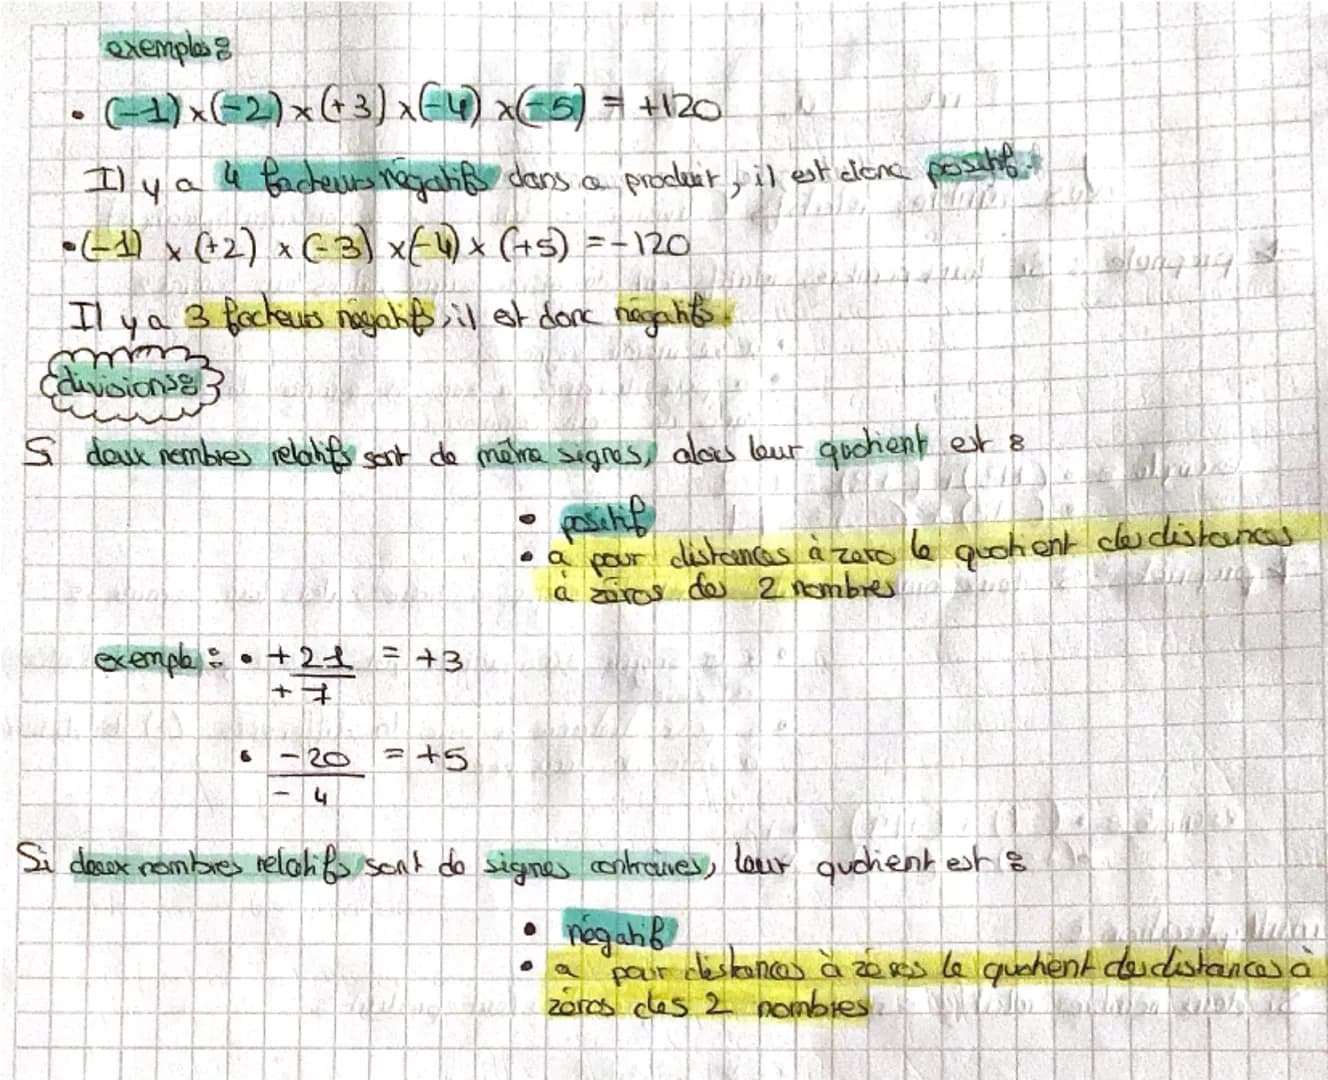 exemples :
• (-1) × (-2) × (+3) × (-4) × (-5) = +120
Il y a 4 facteurs négatifs dans a produit, il est donc positif.
• (-1) × (+2) × (-3) × (-4) × (+5) = -120
Il y a 3 facteurs négatifs, il est donc négatifs.
divisions :
Si deux nombres relatifs sont de même signes, alors leur quotient est :
• positif
• a pour distances à zero le quotient des distances
à zéros des 2 nombres
exemple : • +21 = +3
+7
• -20 = +5
- 4
Si deux nombres relatifs sont de signes contraires, leur quotient est :
• négatif
• a pour distances à zéros le quotient des distances à
zéros des 2 nombres